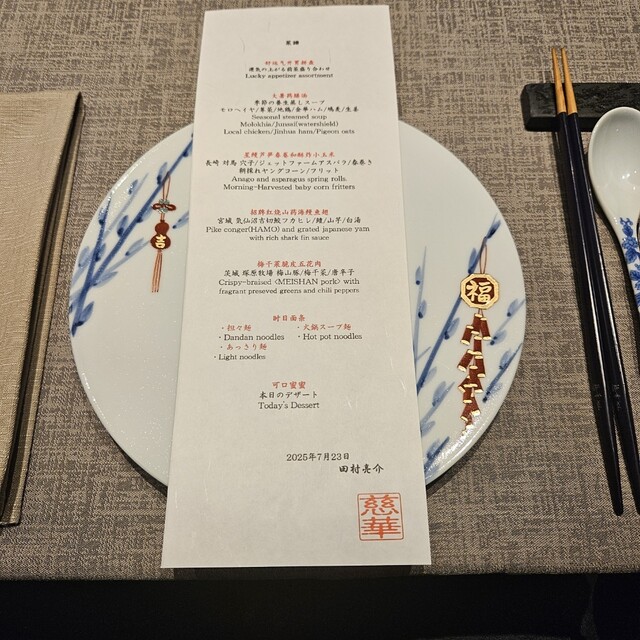 好运气开胃拼盘
運気の上がる前菜盛り合わせ
Lucky appetizer assortment
大暑
季節の養生蒸しスープ
モロヘイヤ/蓴菜/地鶏/金華ハム/鳩麦/生姜
Seasonal steamed soup
Molokhia/Junsai(watershield)
Local chicken/Jinhua ham/Pigeon oats
长崎 対馬 穴子/ジェットファームアスパラ/春巻き
朝採れヤングコーン/フリット
Anago and asparagus spring rolls.
Morning-Harvested baby corn fritters
招牌红烧山药海鳗鱼翅
宮城 気仙沼吉切鮫フカヒレ/鱧/山芋/白湯
Pike conger(HAMO) and grated japanese yam
with rich shark fin sauce
梅干菜脆皮五花肉
茨城 塚原牧場 梅山豚/梅干菜/唐辛子
Crispy-braised <MEISHAN pork> with
fragrant preseved greens and chili peppers
时日面条
・担々麺 ・火鍋スープ麺
・Dandan noodles ・Hot pot noodles
・あっさり麺
・Light noodles
可口蜜蜜
本日のデザート
Today's Dessert
2025年7月23日
田村亮介
慈華
吉
福